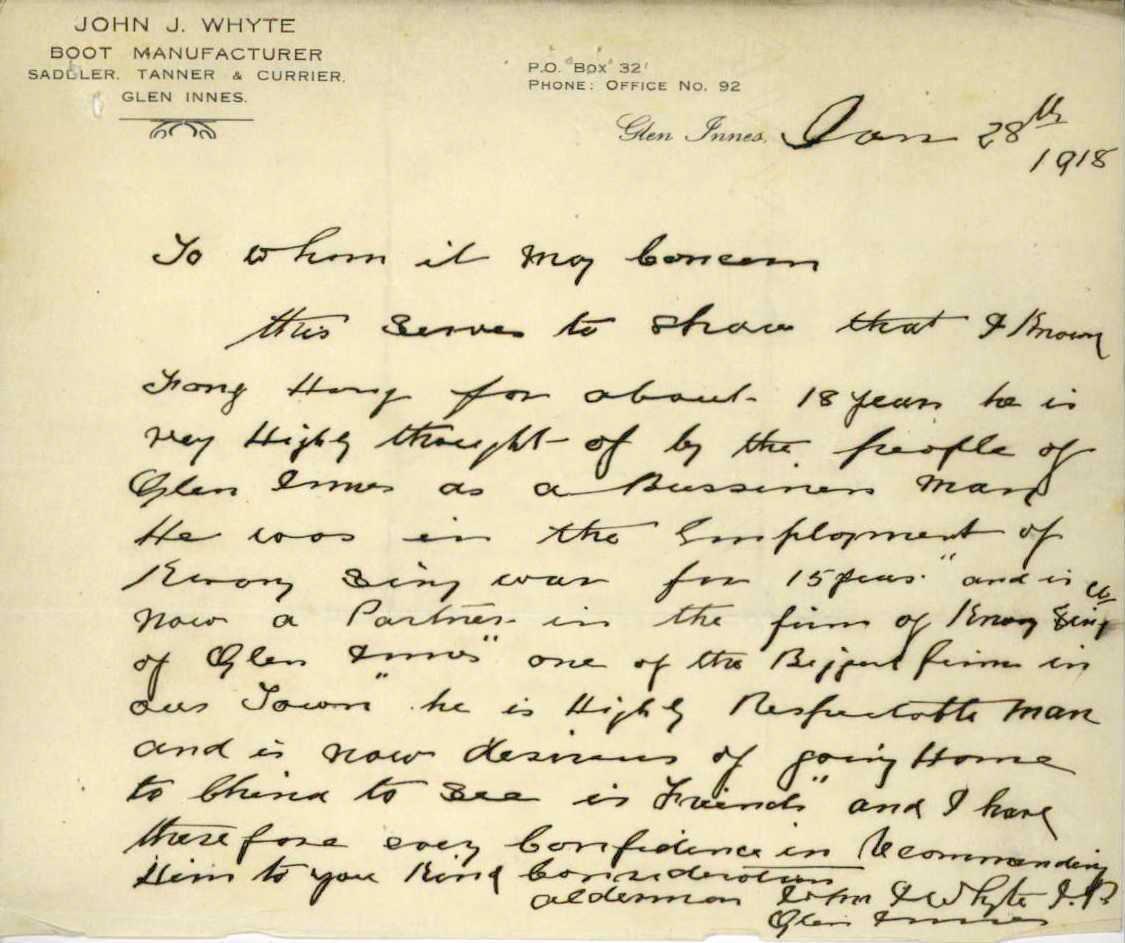 JOHN J. WHYTE
BOOT MANUFACTURER
SADDLER. TANNER & CURRIER.
GLEN INNES.
P.O. Box 32
PHONE: OFFICE No. 92
Glen Innes, Jan 28th
1918
To whom it may Concern
this serves to show that I Known
Fong Hong for about 18 years he is
very Highly thought of by the people of
Glen Innes as a Bussiness Man
He was in the Employment of
Kwong Sing war for 15 years." and is
now a Partner in the firm of Kwong Sing
of Glen Innes" one of the Biggest firms in
our Town" he is Highly Respectable man
and is now desirous of going Home
to China to see is Friends" and I have
therefore every Confidence in Recommending
Him to you Kind Consideration
alderman John J Whyte J.P
Glen Innes